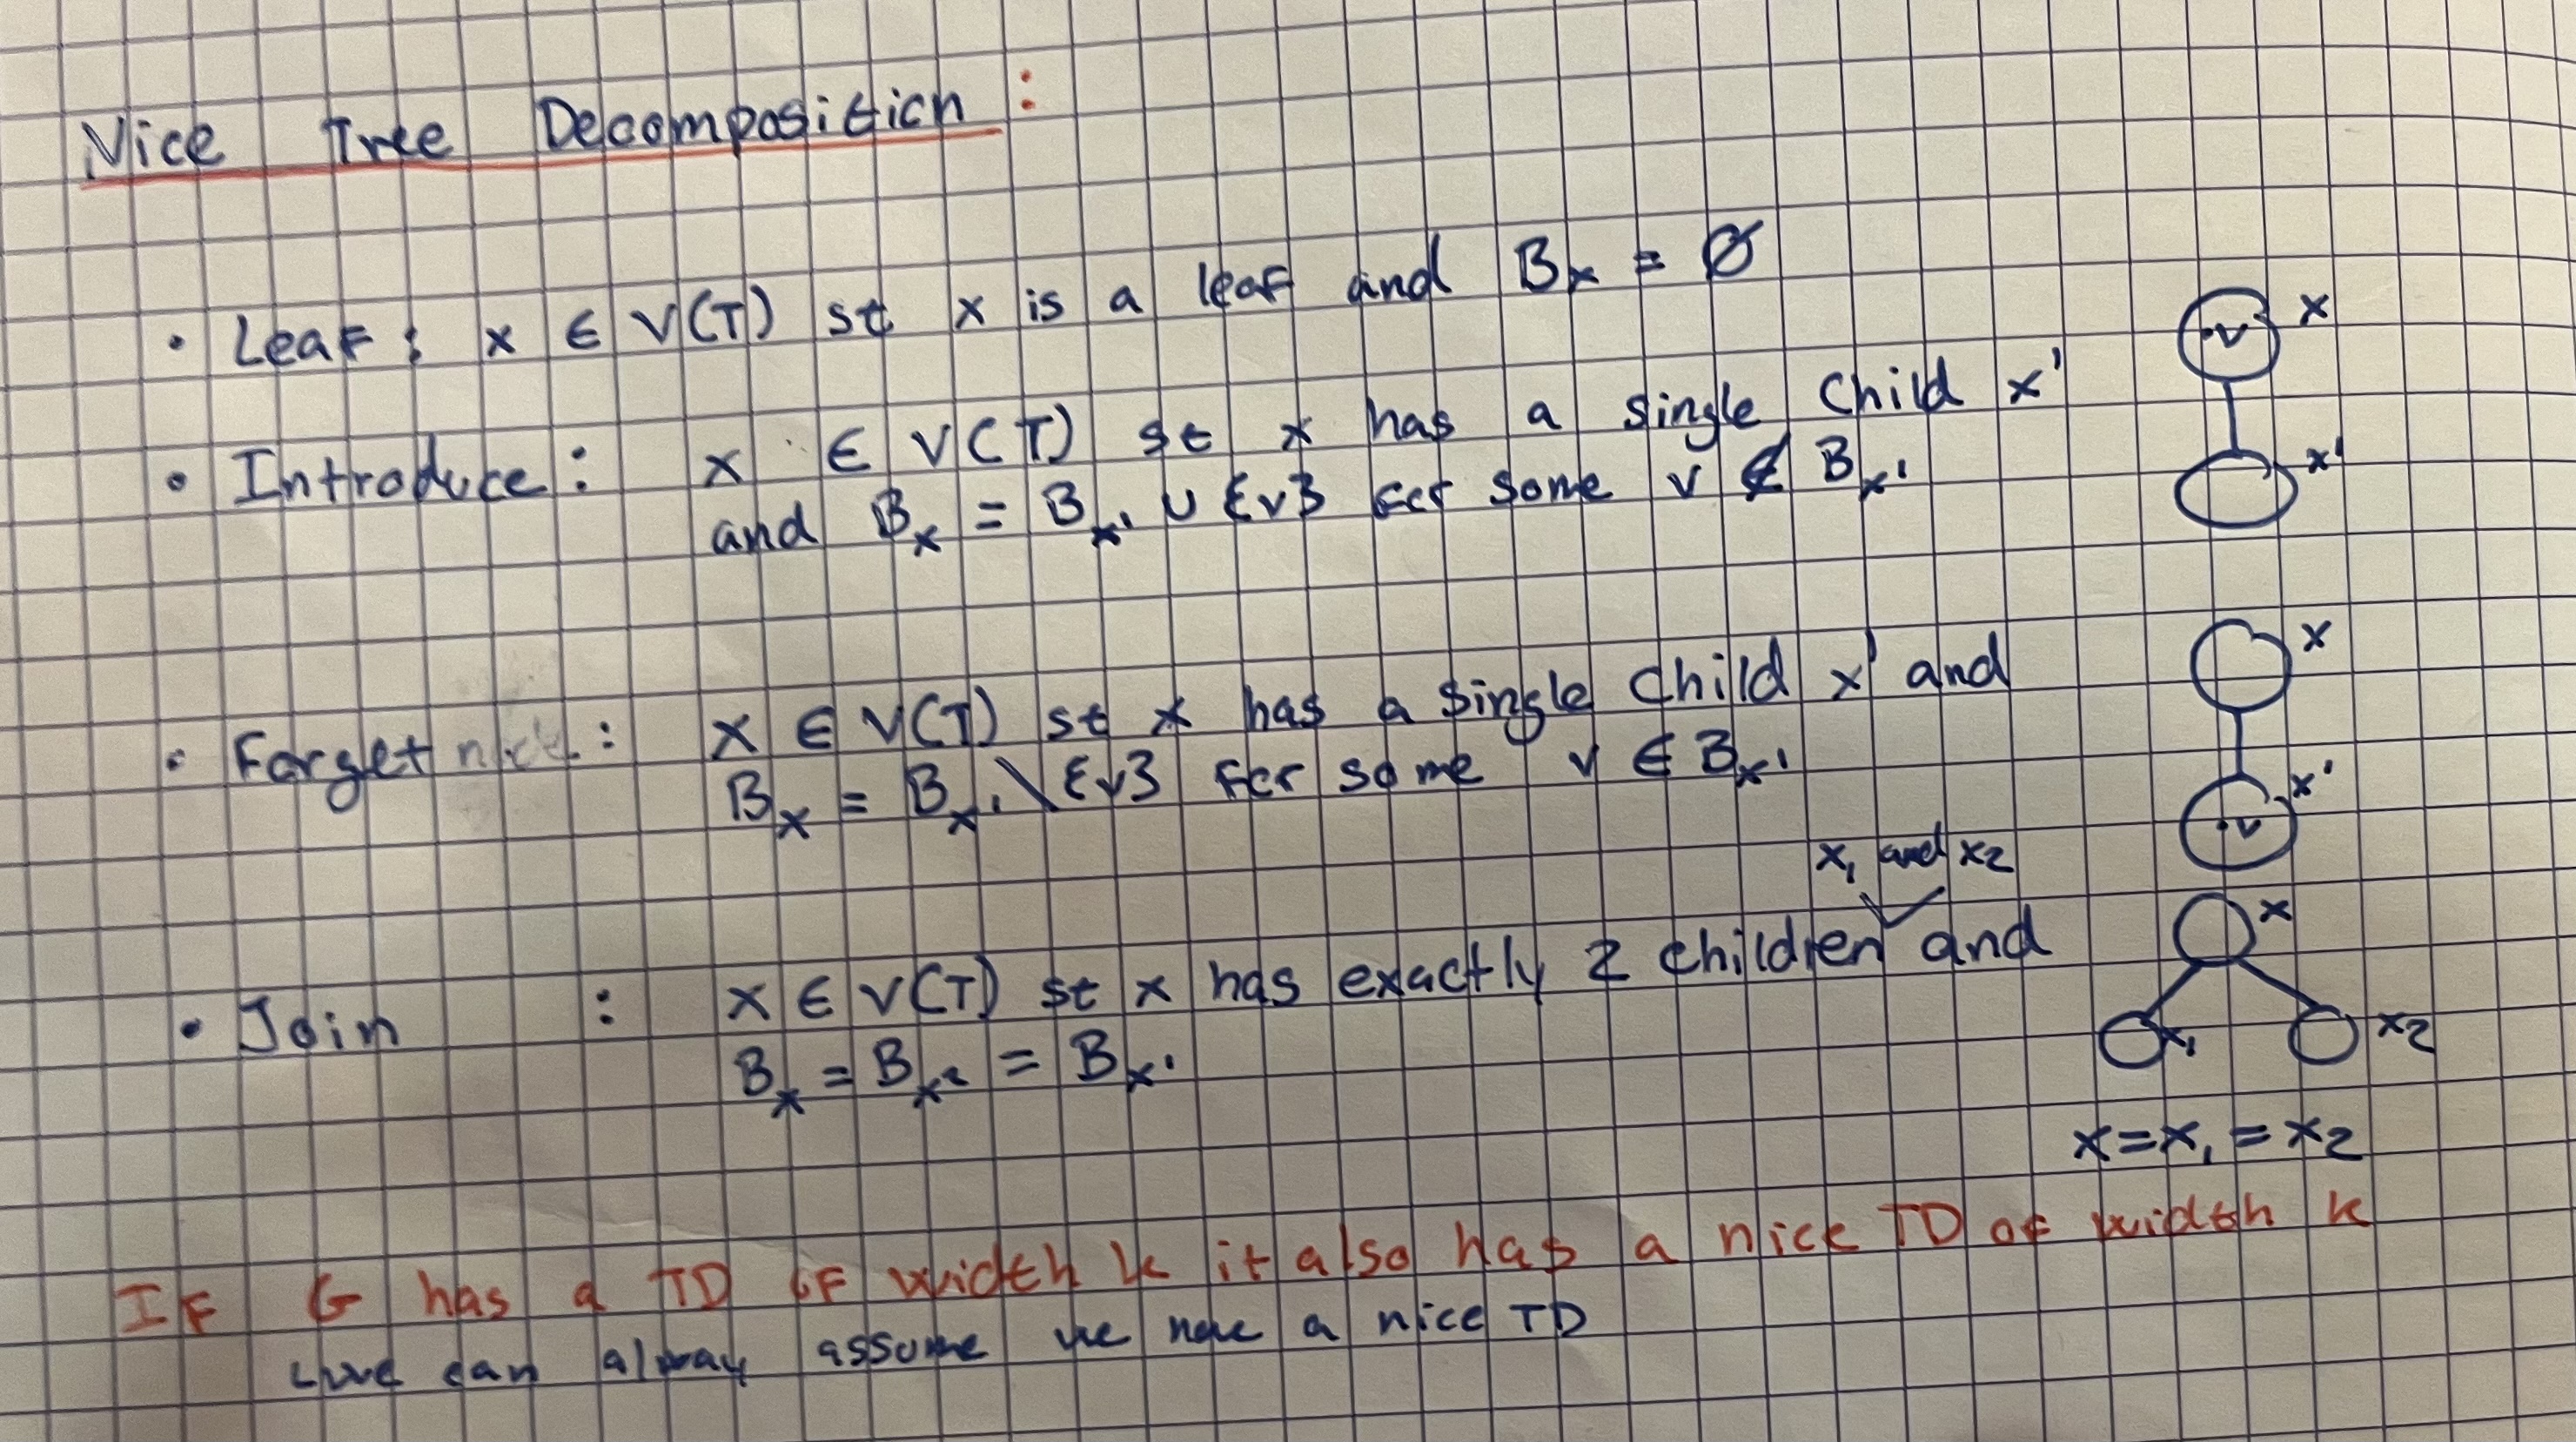 Nice Tree Decomposition :
• Leaf : x ∈ V(T) st x is a leaf and Bx = Ø
x
v
x'
• Introduce : x ∈ V(T) st x has a single Child x'
and Bx = Bx' ∪ {v} for some v ∉ Bx'
• Forget : x ∈ V(T) st x has a single child x' and
Bx = Bx' \ {v} for some v ∈ Bx'
x
x'
v
x1 and x2
• Join : x ∈ V(T) st x has exactly 2 children and
Bx = Bx2 = Bx'
x
x1
x2
x = x1 = x2
IF G has a TD of width k it also has a nice TD of width k
we can alway assume we have a nice TD